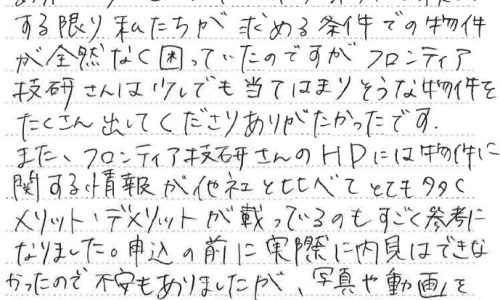 する限り私たちが求める条件での物件
が全然なく困っていたのですがフロンティア
技研さんは少しでも当てはまりそうな物件を
たくさん出してくださりありがたかったです.
また、フロンティア技研さんのHPには物件に
関する情報が他社と比べてとても多く
メリット・デメリットが載っているのもすごく参考に
なりました。申込の前に実際に内見はできな
かったので不安もありましたが、写真や動画を